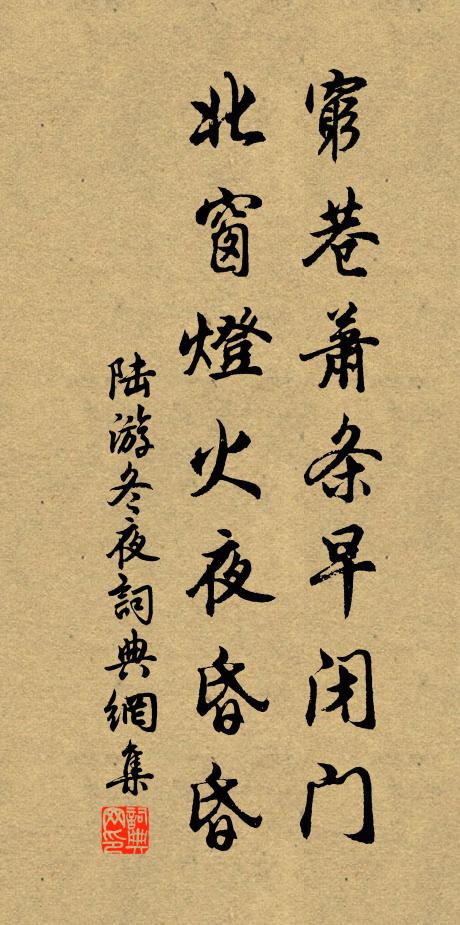 窮巷蕭条早闭门
北窗燈火夜昏昏
陆游冬夜詞典網集
詞典网印